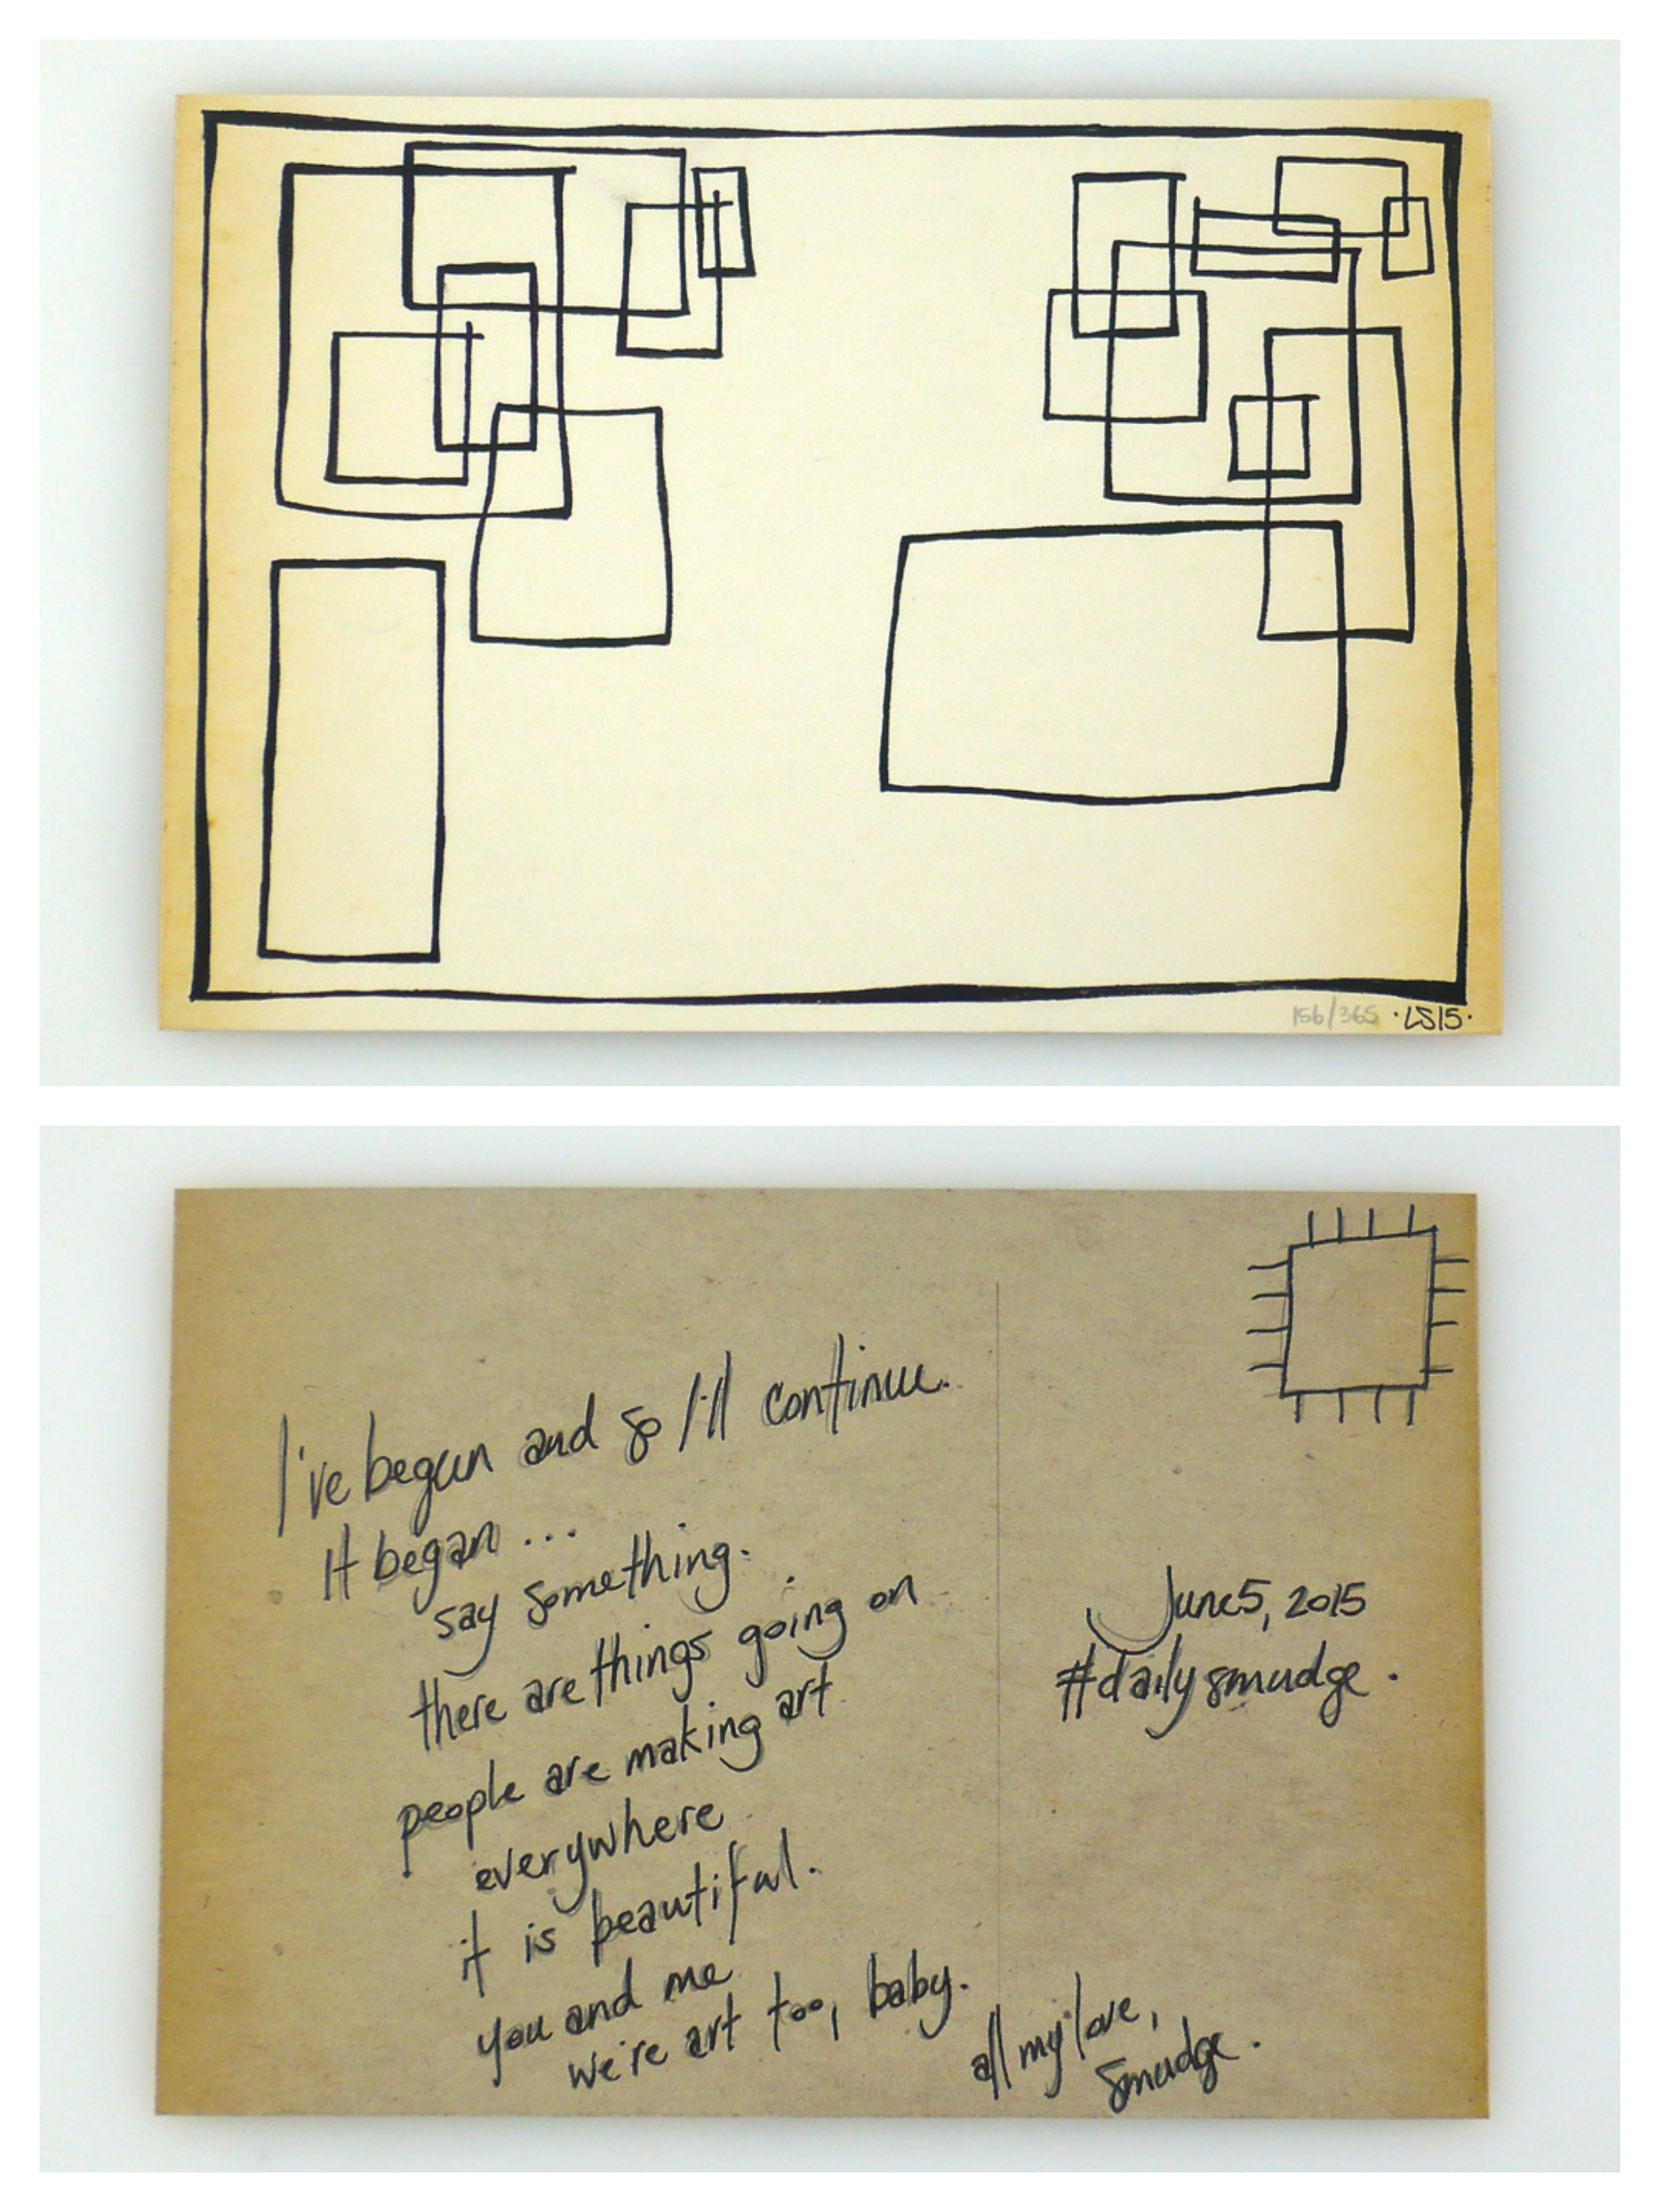 156/365 ·LS15·
I've begun and so I'll continue.
It began ...
say something.
there are things going on
people are making art
everywhere
it is beautiful.
you and me
we're art too, baby.
all my love,
Smudge.
June 5, 2015
#dailysmudge.